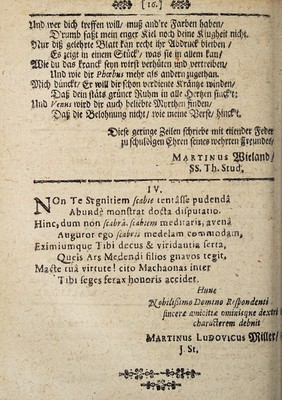 [16.]
Und wer dich treffen will/ muß and're Farben haben/
D'rumb faßt mein enger Kiel noch deine Klugheit nicht.
Nur diß gelehrte Blatt kan recht ihr Abdruck bleiben/
Es zeigt in einem Stück/ was sie in allem kan/
Wie du das kranck seyn wirst verhüten und vertreiben/
Und wie dir Phœbus mehr als andern zugethan.
Mich dünckt/ Er will dir schon verdiente Kräntze winden/
Daß dein stäts grüner Ruhm in alle Herten sinckt:
Und Venus wird dir auch beliebte Myrthen finden/
Daß die Belohnung nicht/ wie meine Verse/ hinckt.
Diese geringe Zeilen schriebe mit eilender Feder
zu schuldigen Ehren seines wehrten Freundes/
MARTINUS Wieland/
SS. Th. Stud.
IV.
NOn Te Segnitiem scabie tentâsse pudendâ
Abundè monstrat docta disputatio.
Hinc, dum non scabrâ scabiem meditaris, avenâ
Auguror ego scabris medelam commodam,
Eximiumque Tibi decus & viridantia serta,
Queis Ars Medendi filios gnavos tegit,
Macte tuâ virtute! cito Machaonas inter
Tibi seges ferax honoris accidet.
Hunc
Nobilissimo Domino Respondenti
sinceræ amicitiæ omnisque dextri
characterem debuit
MARTINUS LUDOVICUS Miller/
J. St.